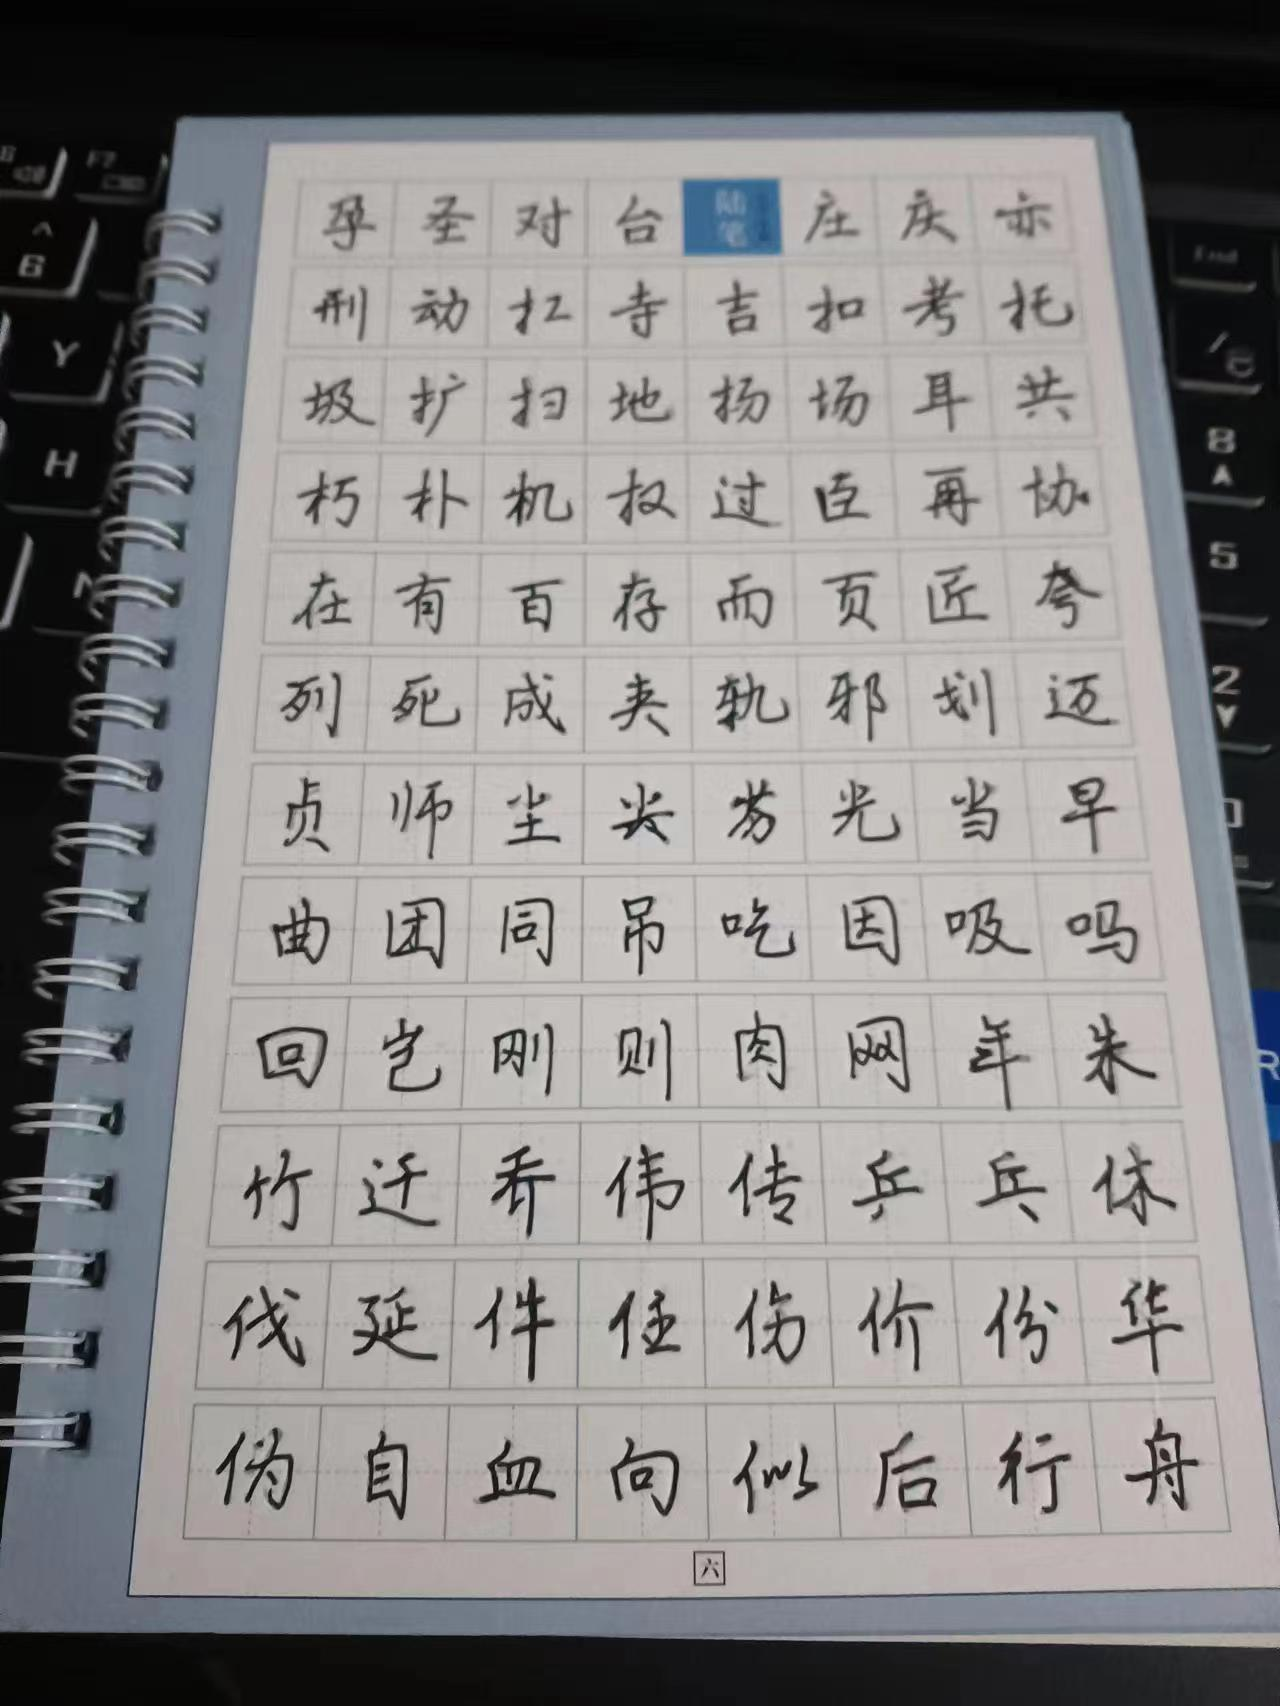 孕圣对台陆笔庄庆亦
刑动扛寺吉扣考托
圾扩扫地扬场耳共
朽朴机权过臣再协
在有百存而页匠夸
列死成夹轨邪划迈
贞师尘尖劣光当早
曲团同吊吃因吸吗
回岂刚则肉网年朱
竹迁乔伟传乒乓休
伐延件任伤价份华
伪自血向似后行舟
六
F7
6
Y
H
End
8
5
2